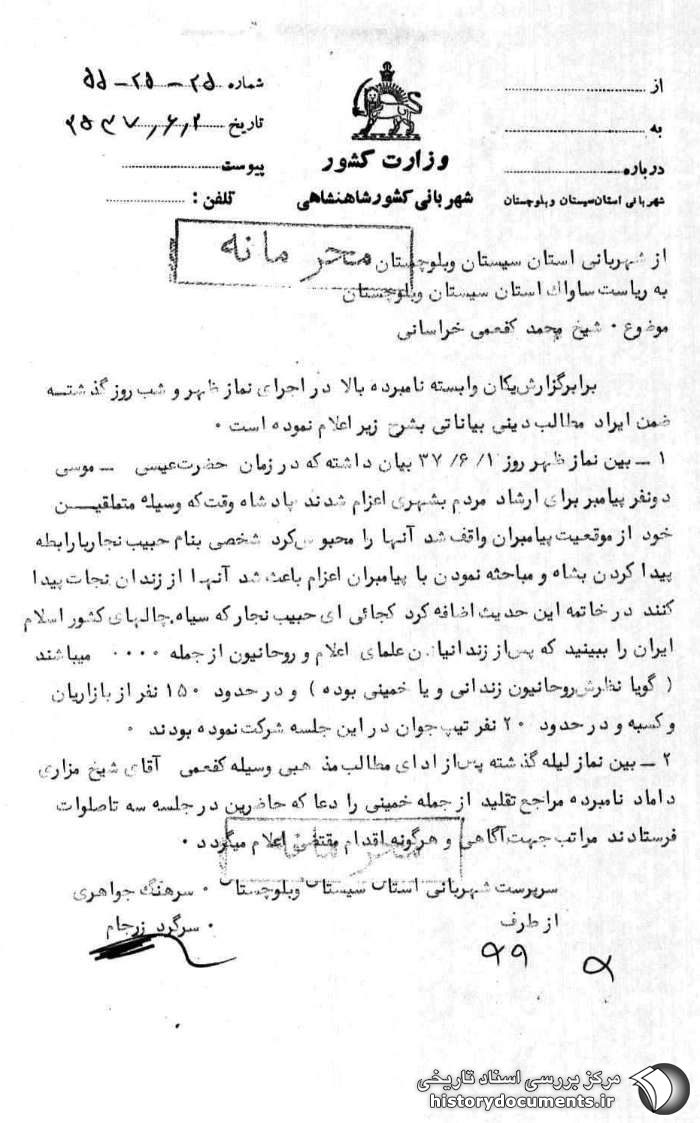 شماره ۲۵-۲۵-۵۵
تاریخ ۲۵۳۷,۶,۲
پیوست
تلفن :
وزارت کشور
شهربانی کشور شاهنشاهی
از
به
درباره
شهربانی استان سیستان وبلوچستان
محرمانه
از شهربانی استان سیستان وبلوچستان
به ریاست ساواک استان سیستان وبلوچستان
موضوع ۰ شیخ محمد کفعمی خراسانی
برابرگزارش یکان وابسته نامبرده بالا در اجرای نماز ظهر و شب روز گذشته
ضمن ایراد مطالب دینی بیاناتی بشرح زیر اعلام نموده است ۰
۱ ــ بین نماز ظهر روز ۱/ ۶/ ۳۷ بیان داشته که در زمان حضرت عیسی ــ موسی
دونفر پیامبر برای ارشاد مردم بشهری اعزام شدند پادشاه وقت که وسیله متملقین
خود از موقعیت پیامبران واقف شد آنها را محبوس کرد شخصی بنام حبیب نجار با رابطه
پیدا کردن بشاه و مباحثه نمودن با پیامبران اعزام باعث شد آنها از زندان نجات پیدا
کنند در خاتمه این حدیث اضافه کرد کجائی ای حبیب نجار که سیاه چالهای کشور اسلام
ایران را ببینید که پس از زندانیان علمای اعلام و روحانیون از جمله ۰۰۰۰ میباشند
( گویا نظرش روحانیون زندانی و یا خمینی بوده ) و در حدود ۱۵۰ نفر از بازاریان
و کسبه و در حدود ۲۰ نفر تیپ جوان در این جلسه شرکت نموده بودند ۰
۲ ــ بین نماز لیله گذشته پس از ادای مطالب مذهبی وسیله کفعمی آقای شیخ مزاری
داماد نامبرده مراجع تقلید از جمله خمینی را دعا که حاضرین در جلسه سه تا صلوات
فرستادند مراتب جهت آگاهی و هرگونه اقدام مقتضی اعلام میگردد ۰
محرمانه
سرپرست شهربانی استان سیستان وبلوچستان ۰ سرهنگ جواهری
از طرف ۰ سرگرد زرجام
۹۹ ۵
مرکز بررسی اسناد تاریخی
historydocuments.ir